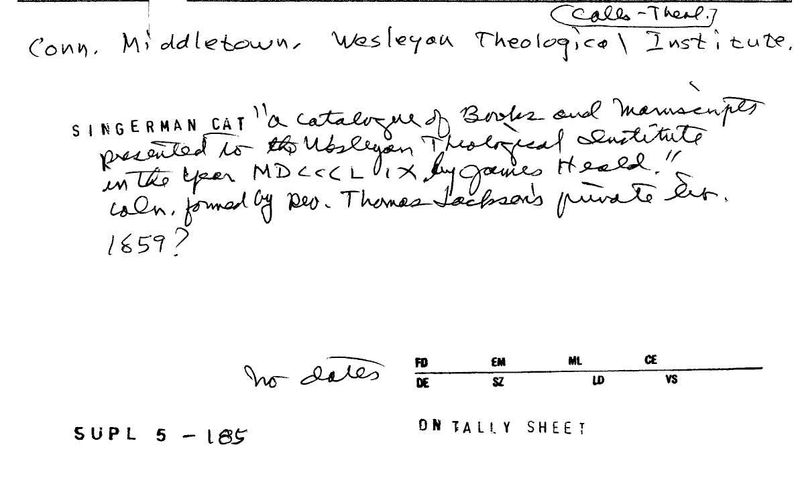 (Colls-Theol.)
Conn. Middletown. Wesleyan Theological Institute.
SINGERMAN CAT "a catalogue of Books and Manuscripts
presented to the Wesleyan Theological Institute
in the year MDCCCLIX by James Heald."
coln. formed by Rev. Thomas Jackson's private libr.
1859?
no dates
FD EM ML CE
DE SZ LD VS
SUPL 5 - 185
ON TALLY SHEET